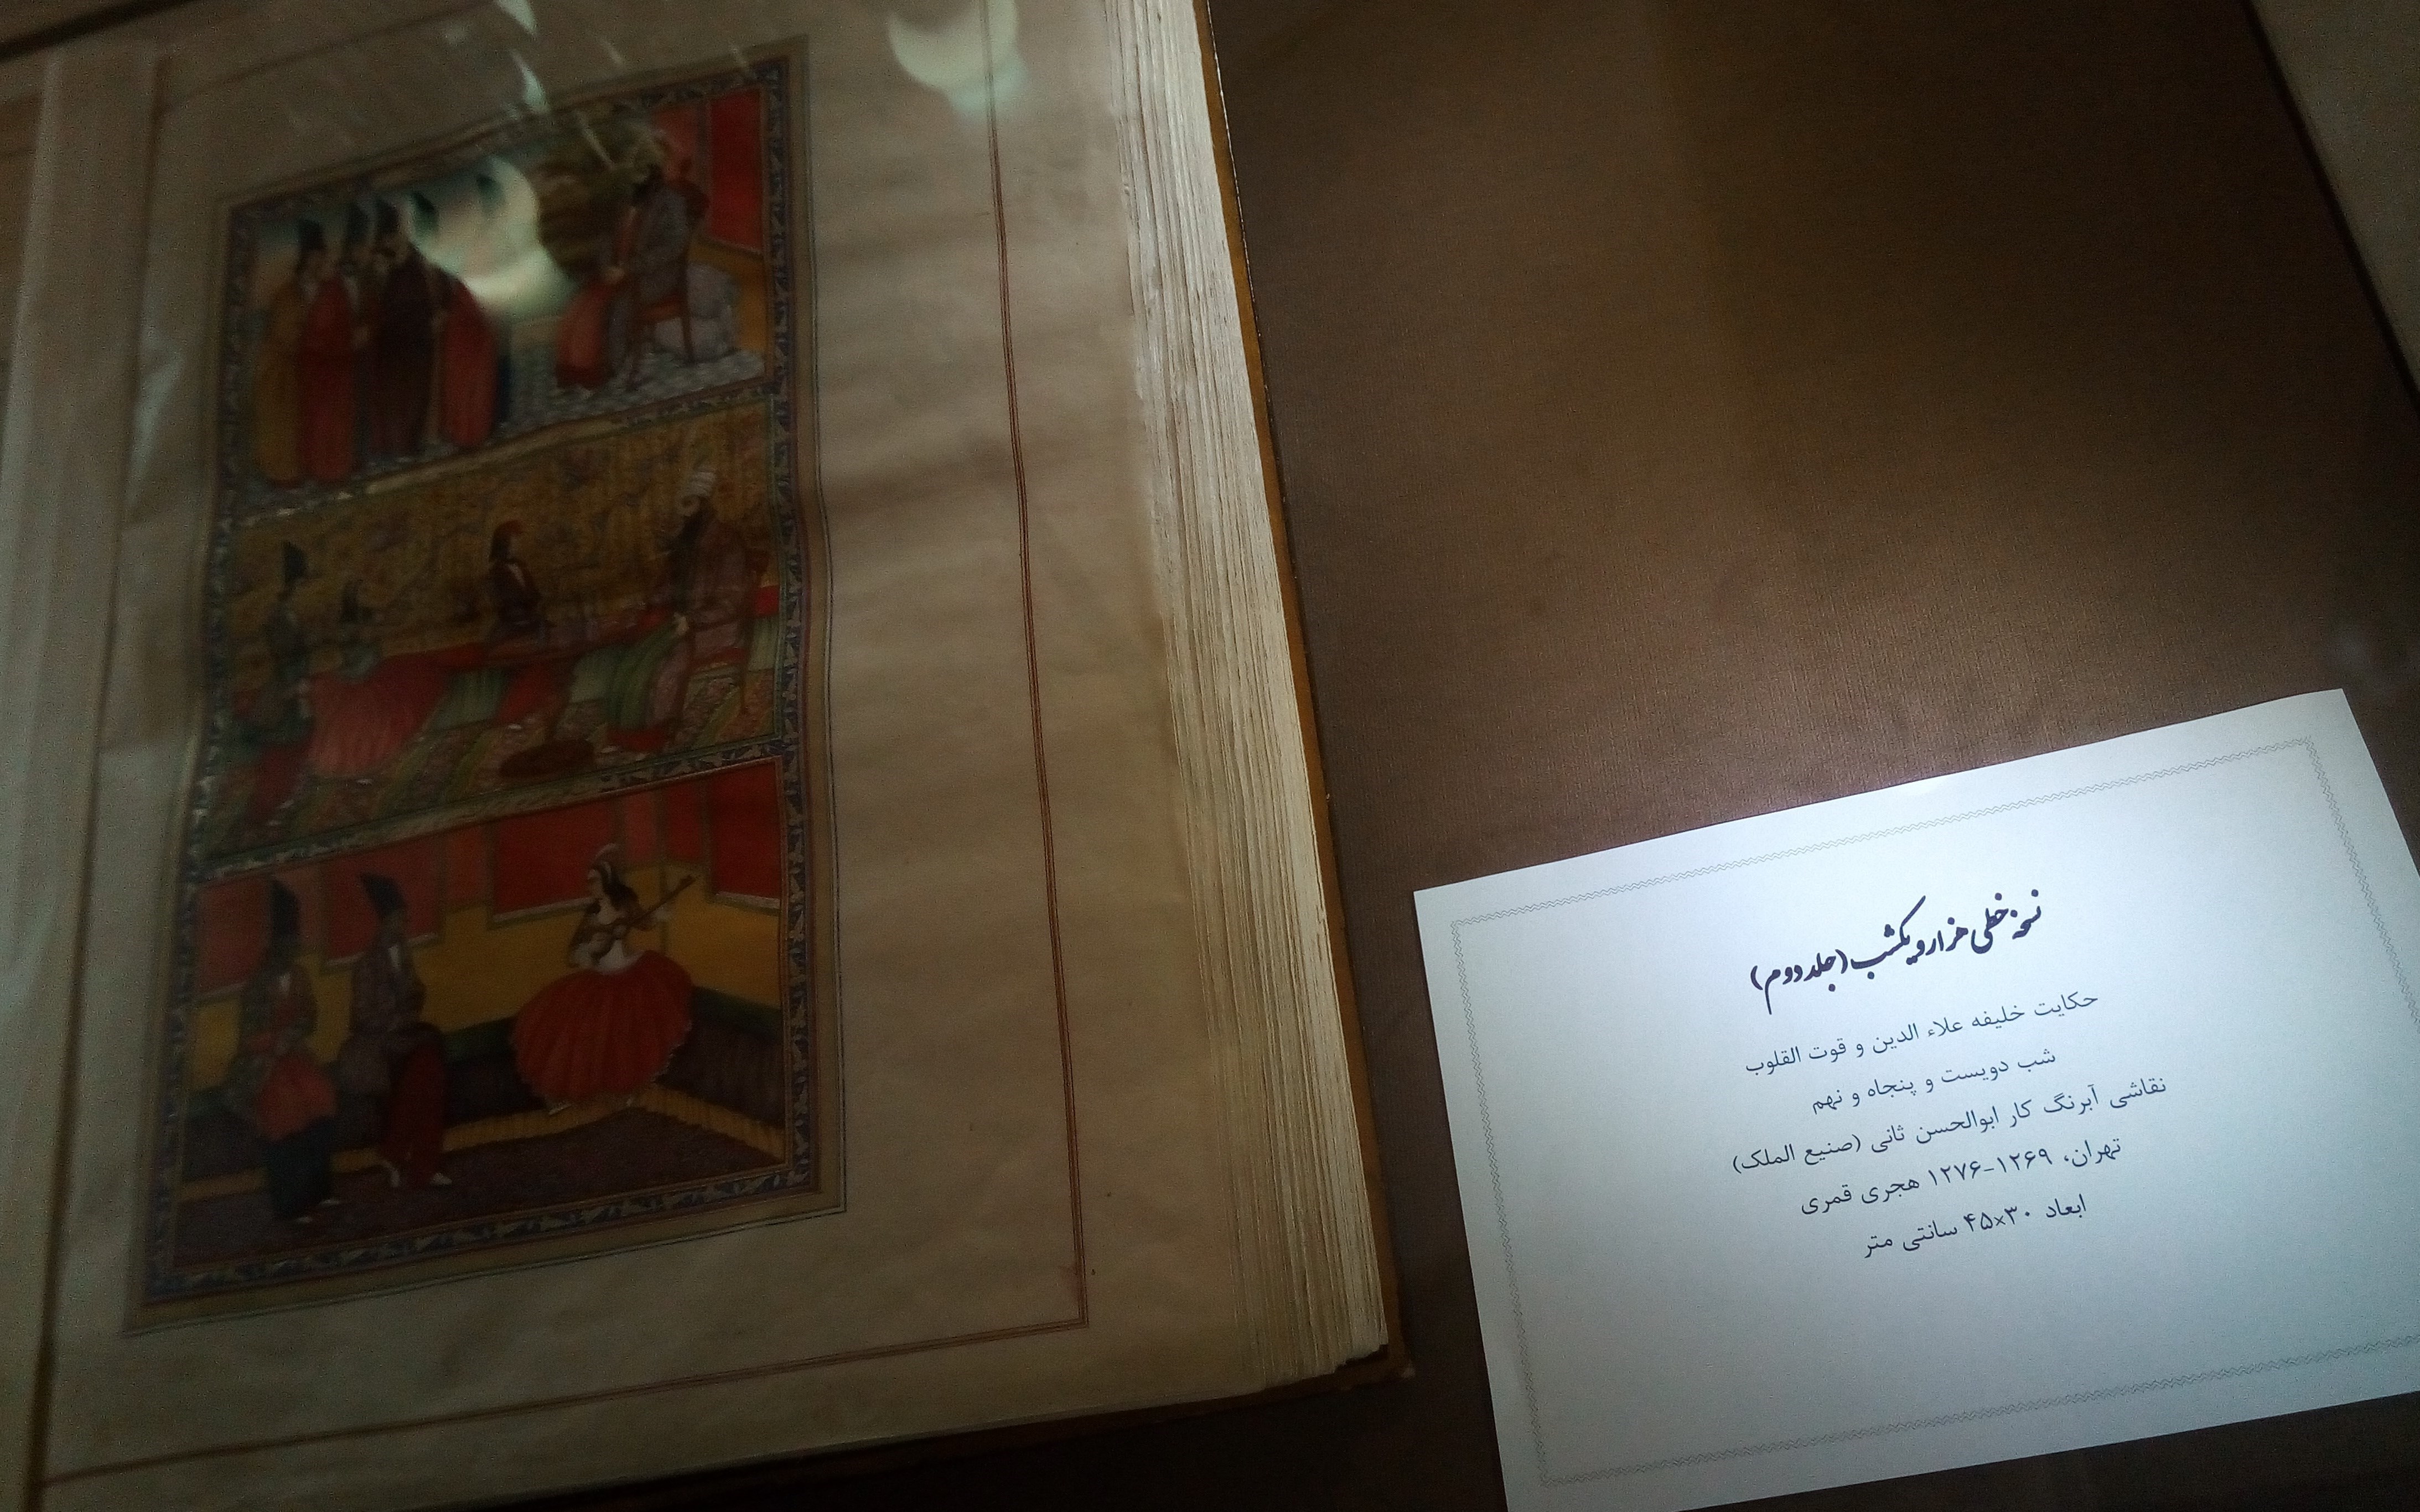 نسخه خطی هزار و یکشب (جلد دوم)
حکایت خلیفه علاء الدین و قوت القلوب
شب دویست و پنجاه و نهم
نقاشی آبرنگ کار ابوالحسن ثانی (صنیع الملک)
تهران، ۱۲۶۹-۱۲۷۶ هجری قمری
ابعاد ۳۰×۴۵ سانتی متر